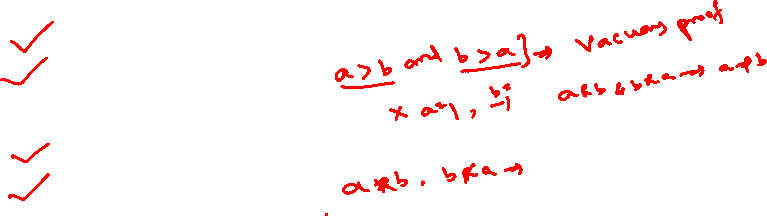 a > b and b > a } → Vacuous proof
× a=1, b=1 aRb & bRa → a=b
aRb, bRa →